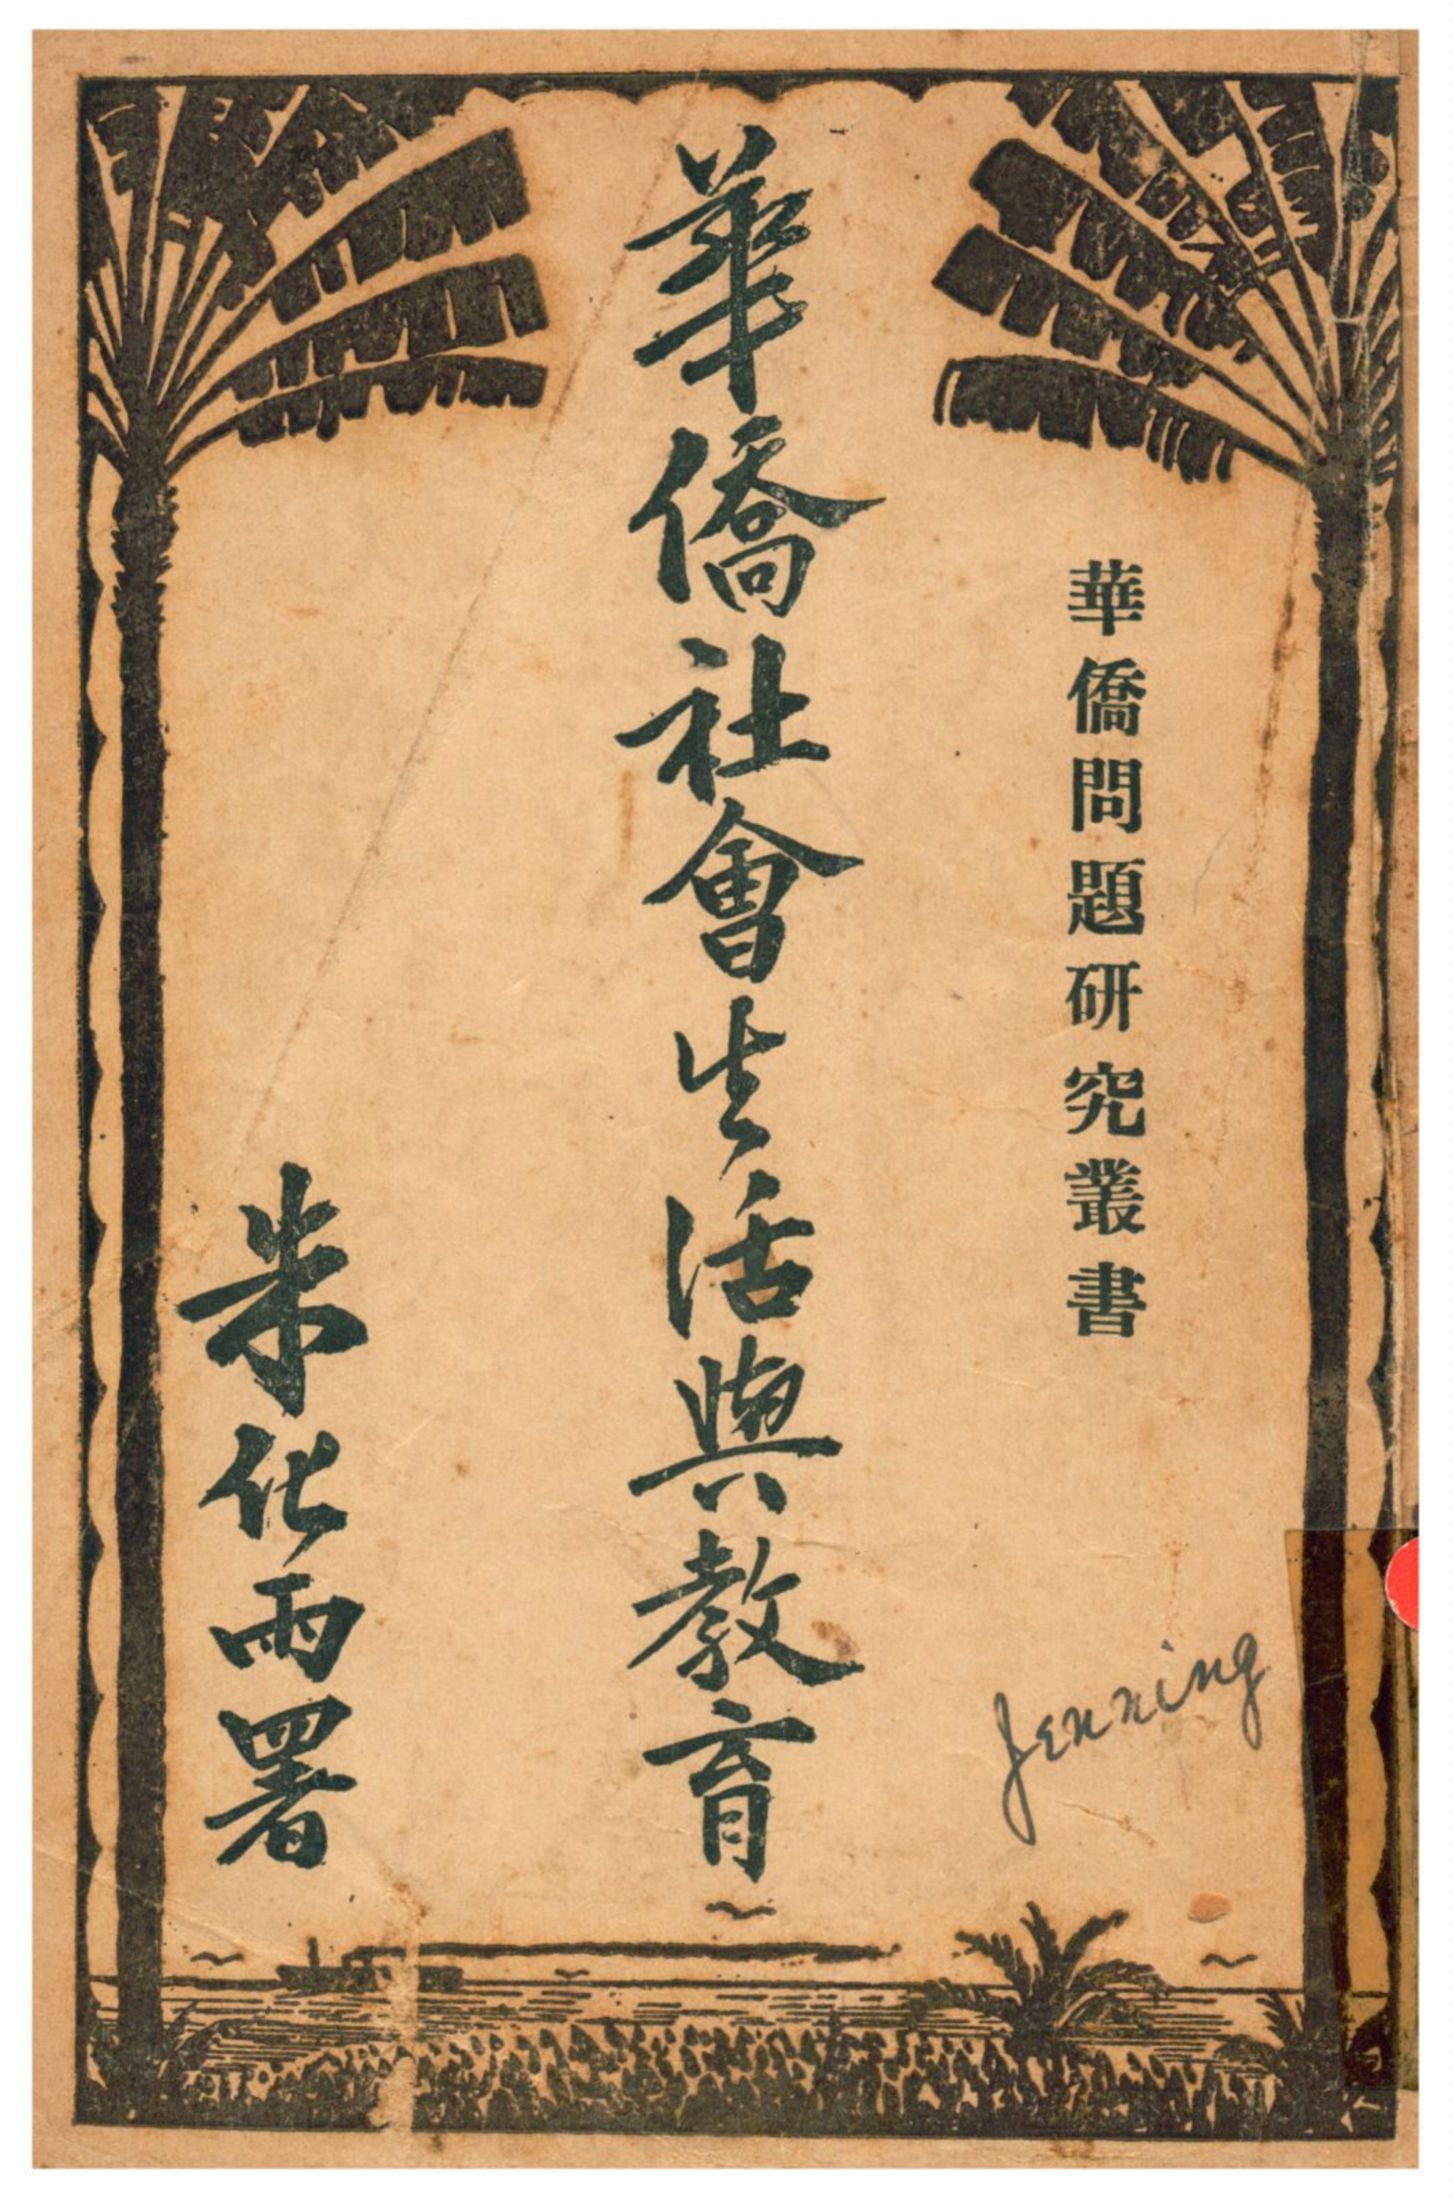 華僑問題研究叢書
華僑社會生活與教育
朱化雨署
Jenning